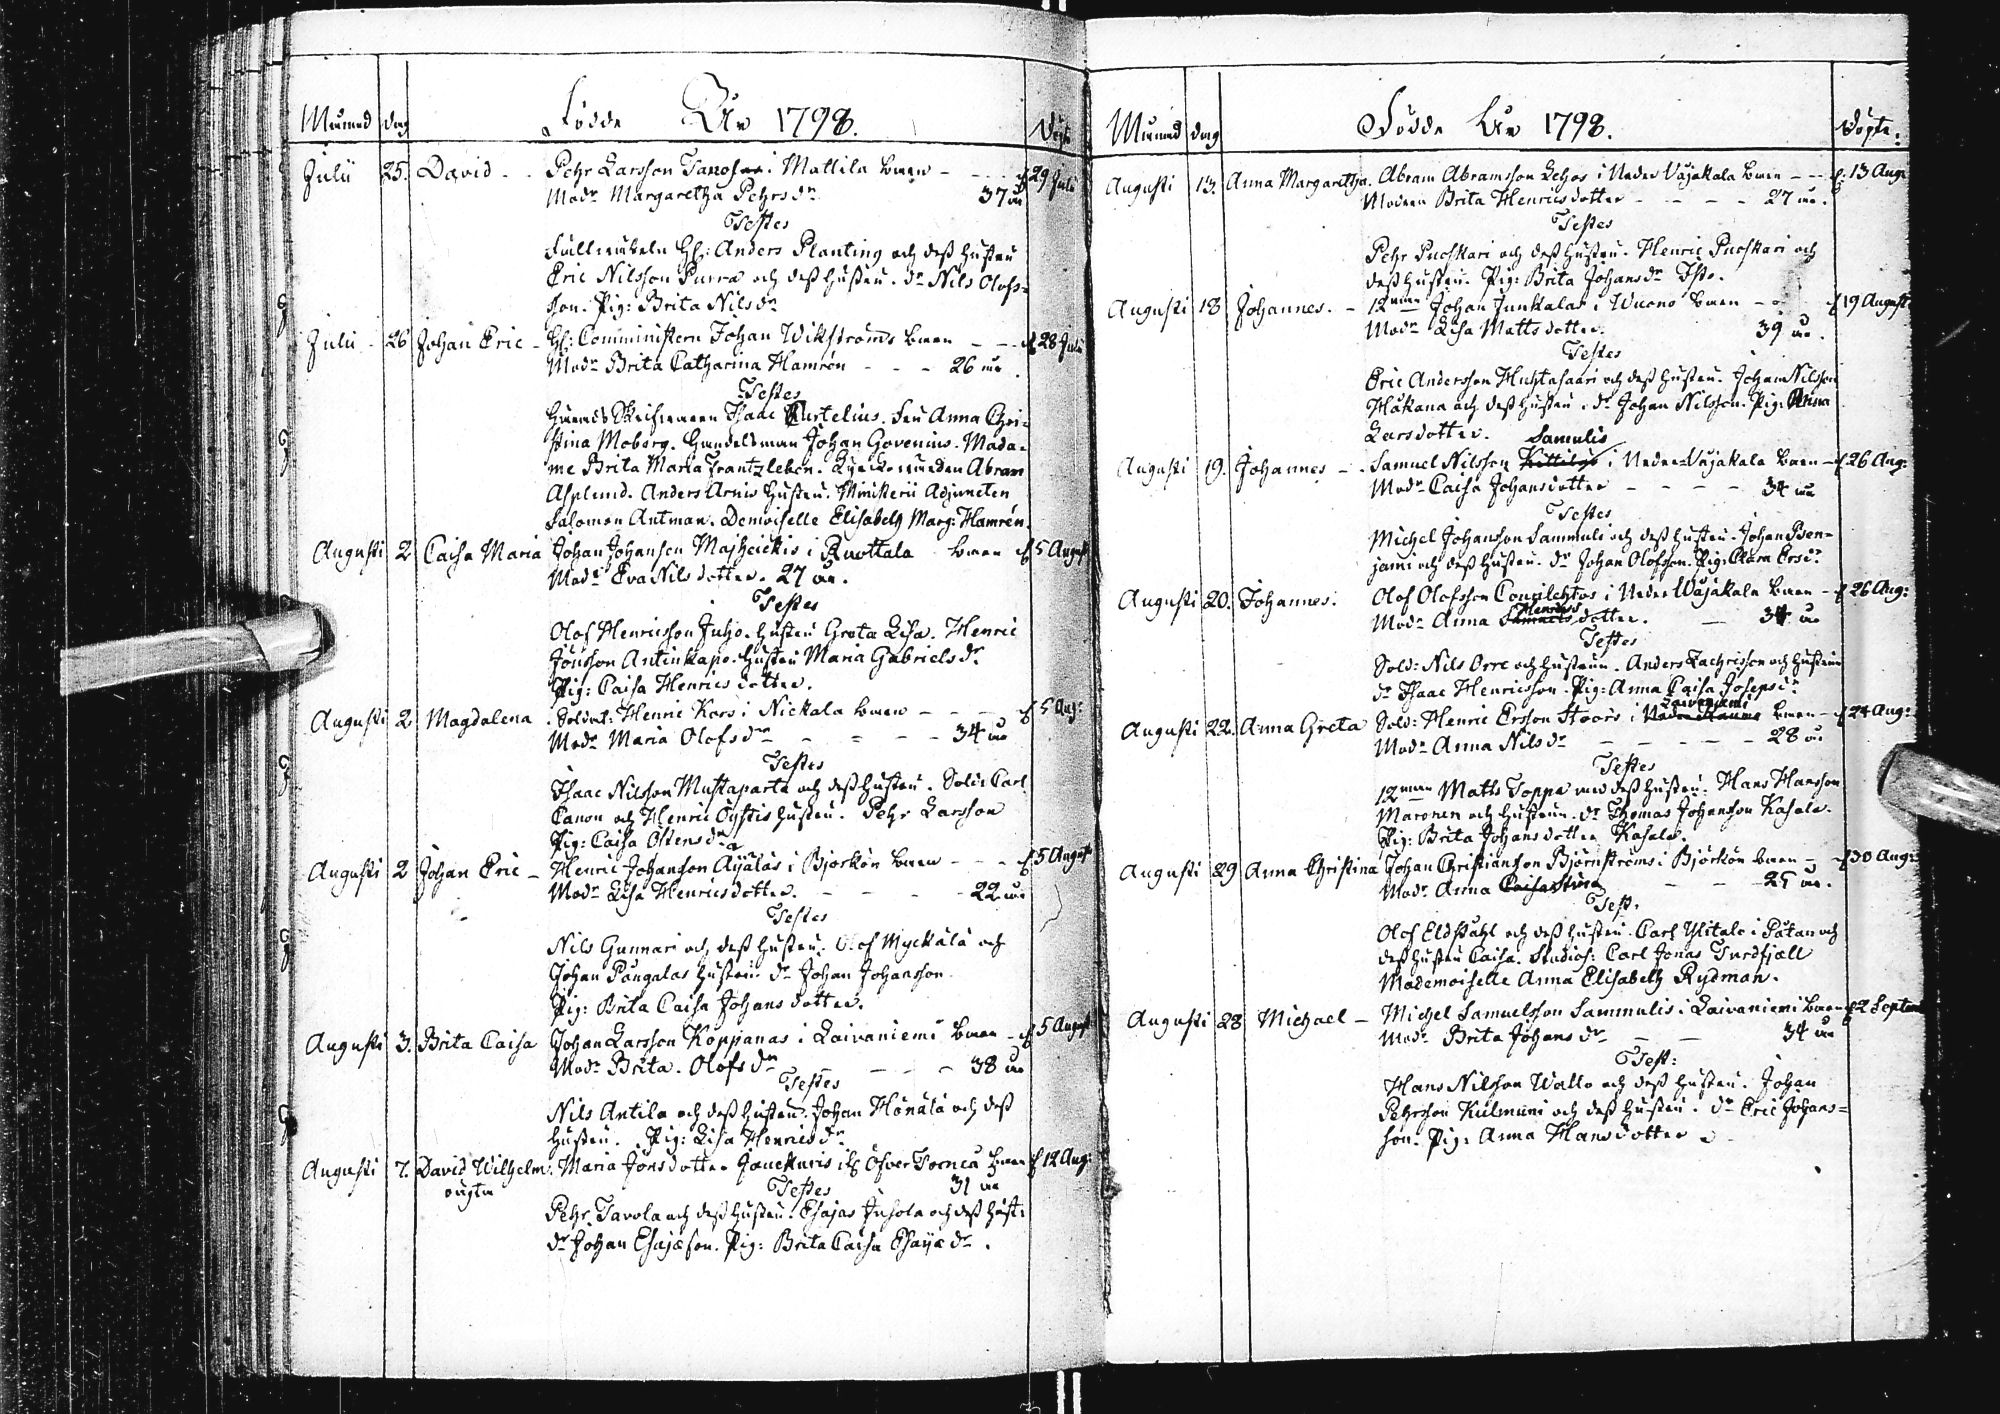 Månad dag Födde Åhr 1798. Döpte
Julii 25. David Pehr Larsson Tanos i Mattila barn 29 Julii
Modr Margaretha Pehrs dr 37 år
Testes
Fullmäkeln H: Anders Planting och dess hustru
Eric Nilsson Purra och dess hustru. dr Nils Olofs-
son. Pig: Brita Nils dr
Julii 26 Johan Eric H: Comministern Johan Wikströms barn 28 Julii
Modr Brita Catharina Hamrén 26 år
Testes
Isaac Curtelius. Fru Anna Chri-
stina Moberg. Handelsman Johan Govenius. Mada-
me Brita Maria Frantzleben. Abram
Asplund. Anders Arnis hustru. Ministerii Adjuncten
Salomon Antman. Demoiselle Elisabeth Marg: Hamrén.
Augusti 2 Caisa Maria Johan Johansson Majheickis i Ruottala barn 5 August
Modr Eva Nils dotter. 27 år.
Testes
Olof Henricsson Juho. hustru Greta Lisa. Henric
Jönsson Antinkapo. hustru Maria Gabriels dr
Pig: Caisa Henrics dotter.
Augusti 2 Magdalena Soldat: Henric Kors i Nickala barn 5 Aug:
Modr Maria Olofs dr 34 år
Testes
Isaac Nilsson Mustaparta och dess hustru. Sold: Carl
Canon och Henric Öystis hustru. Pehr Larsson
Pig: Caisa Ostens dr
Augusti 2 Johan Eric Henric Johansson Äyäläs i Björkön barn 5 August
Modr Lisa Henrics dotter. 22 år
Testes
Nils Gunnari och dess hustru. Olof Myckälä och
Johan Pängalas hustru. dr Johan Johansson.
Pig: Brita Caisa Johans dotter.
Augusti 3. Brita Caisa Johan Larsson Koppanas i Laivaniemi barn 5 August
Modr Brita. Olofs dr 38 år
Testes
Nils Antila och dess hustru. Johan Hänälä och dess
hustru. Pig: Lisa Henrics dr
Augusti 7. David Wilhelm Maria Jöns dotter i Öfver Torneå barn 12 Aug:
oägta Testes 31 år
Pehr Tavola och dess hustru. Esajas Juhola och dess hust:
dr Johan Esajæson. Pig: Brita Caisa Esajæ dr.
Månad dag Födde Åhr 1798. Döpte:
Augusti 13. Anna Margaretha. Abram Abramsson Lehos i Neder Väjakala barn 13 Aug:
Modren Brita Henrics dotter 27 år.
Testes
Pehr Puoskari och dess hustru. Henric Puoskari och
dess hustru. Pig: Brita Johans dr Isto.
Augusti 18 Johannes. 12man Johan Junkalas i Wuono barn 19 August
Modr Lisa Matts dotter. 39 år.
Testes
Eric Andersson Huhtasaari och dess hustru. Johan Nilsson
Håkana och dess hustru. dr Johan Nilsson. Pig: Anna
Lars dotter.
Samulis
Augusti 19. Johannes Samuel Nilsson Kittilys i Neder Väjakala barn 26 Aug:
Modr Caisa Johansdotter 34 år
Testes
Michel Johansson Sammuli och dess hustru. Johan Ben-
jami och dess hustru. dr Johan Olofsson. Pig: Clara Ersdr
Augusti 20. Johannes. Olof Olofsson Conilehtos i Neder Wäjakala barn 26 Aug:
Henrics
Modr Anna Samuels dotter. 34 år
Testes
Sold: Nils Orre och hustrun. Anders Zachrisson och hustrun
dr Isaac Henricsson. Pig: Anna Caisa Josepsdr
Laivaniemi
Augusti 22. Anna Greta Sold: Henric Ersson Stoors i Neder barn 24 Aug:
Modr Anna Nils dr 28 år
Testes
12man Matts Toppa med dess hustru. Hans Hansson
Maronen och hustrun. dr Thomas Johansson Kasala.
Pig: Brita Johans dotter Kasala.
Augusti 29 Anna Christina Johan Christiansson Björnströms i Björkön barn 30 Aug:
Modr Anna Caisa Stina 25 år.
Test:
Olof Eldstahl och dess hustru. Carl Ylitalo i Pätan och
dess hustru Caisa. Studios: Carl Jonas Turdfjæll
Mademoiselle Anna Elisabeth Rydman.
Augusti 28 Michael Michel Samuelsson Sammulis i Laivaniemi barn 2 Septem
Modr Brita Johans dr 34 år
Test:
Hans Nilsson Wallo och dess hustru. Johan
Pehrsson Kulmuni och dess hustru. dr Eric Johans-
son. Pig: Anna Hansdotter